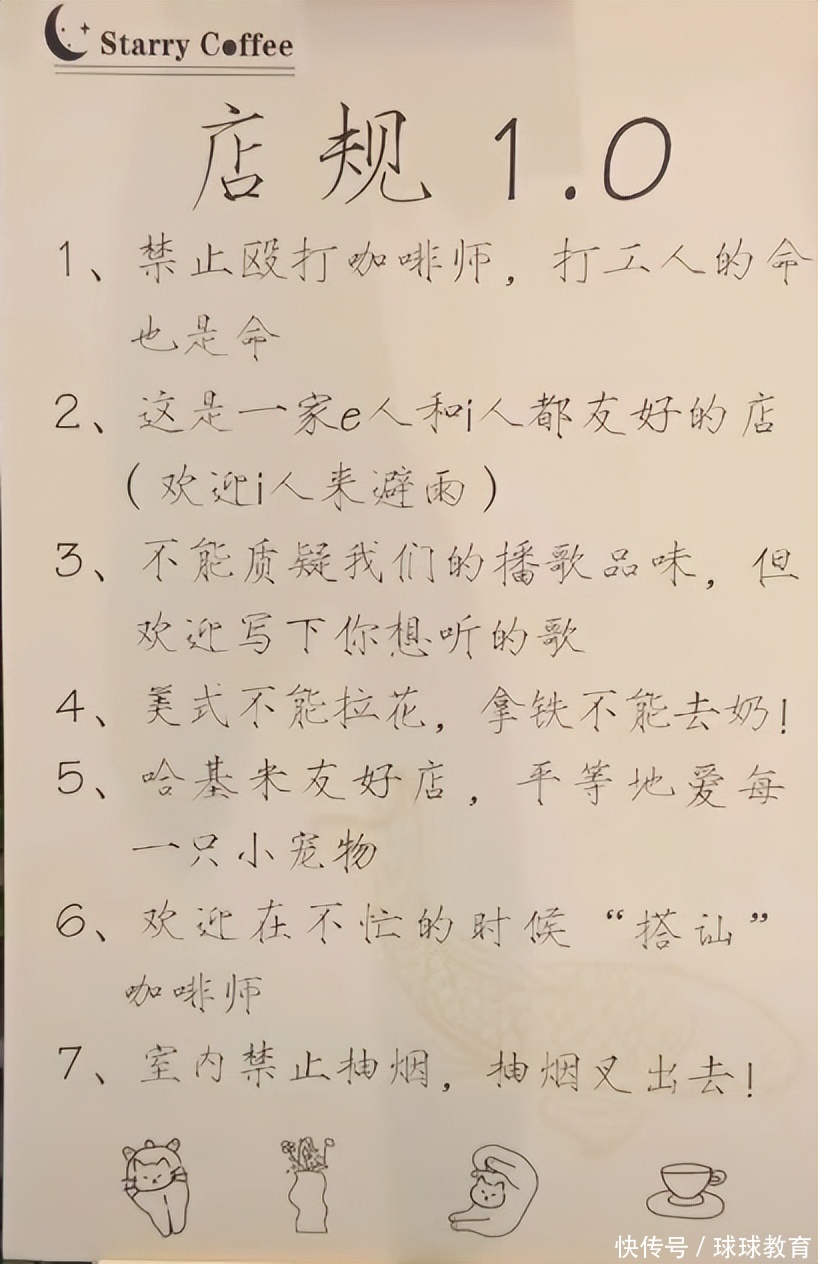 Starry Coffee
店规 1.0
1、禁止殴打咖啡师，打工人的命
也是命
2、这是一家e人和i人都友好的店
（欢迎i人来避雨）
3、不能质疑我们的播歌品味，但
欢迎写下你想听的歌
4、美式不能拉花，拿铁不能去奶！
5、哈基米友好店，平等地爱每
一只小宠物
6、欢迎在不忙的时候“搭讪”
咖啡师
7、室内禁止抽烟，抽烟叉出去！
快传号 / 球球教育